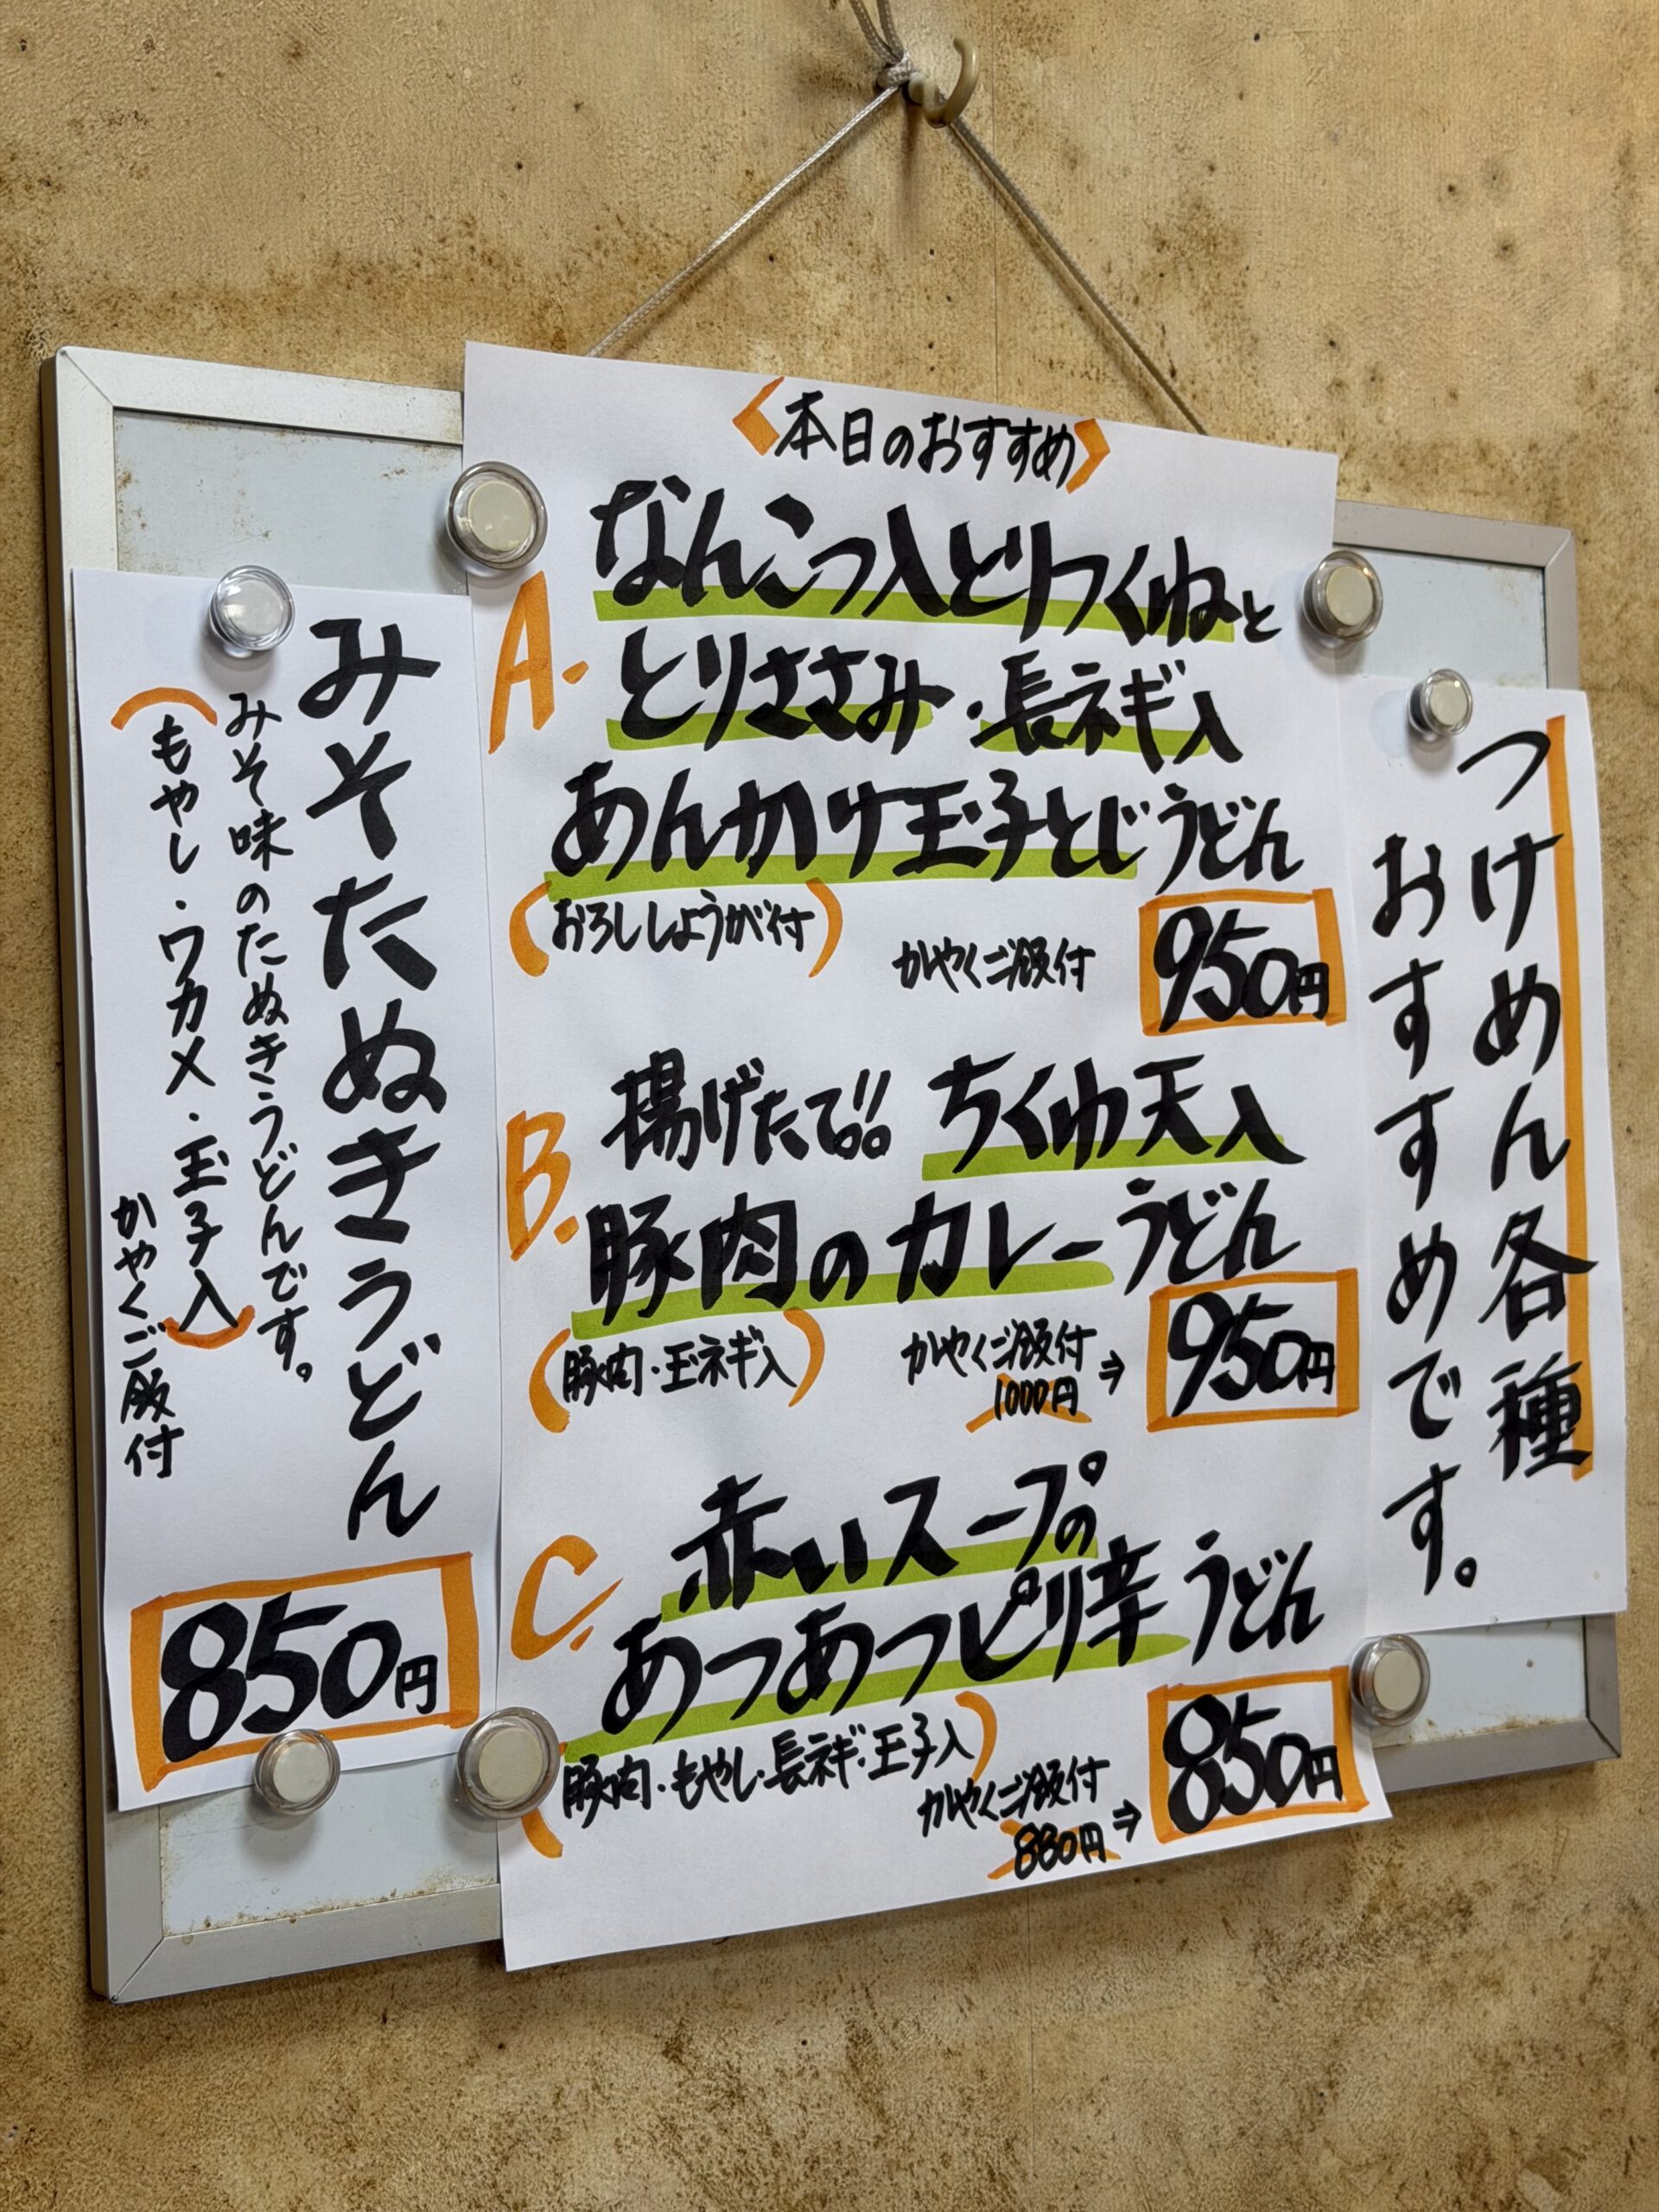 〈本日のおすすめ〉
A. なんこつ入とりつくねと
とりささみ・長ネギ入
あんかけ玉子とじうどん
(おろししょうが付)
かやくご飯付
950円
B. 揚げたて!! ちくわ天入
豚肉のカレーうどん
(豚肉・玉ネギ入)
かやくご飯付
1000円⇒950円
C. 赤いスープの
あつあつピリ辛うどん
(豚肉・もやし・長ネギ・玉子入)
かやくご飯付
880円⇒850円
つけめん各種
おすすめです。
みそたぬきうどん
みそ味のたぬきうどんです。
(もやし・ワカメ・玉子入)
かやくご飯付
850円